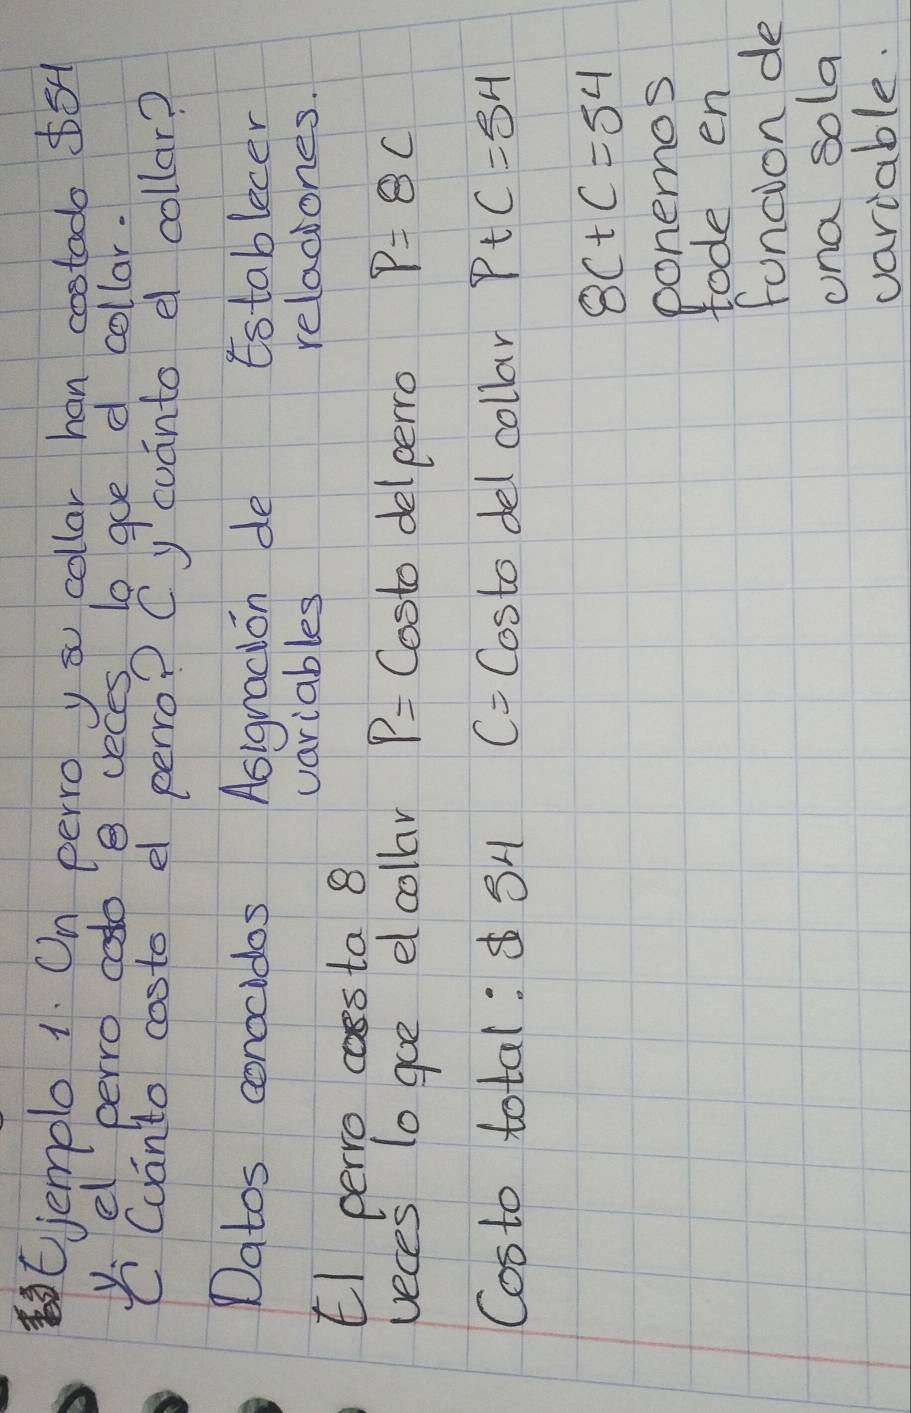 Ejemplo 1. Un perro y su collar han costado $54
y el perro costo 8 veces lo que el collar.
¿Cuánto costo el perro? C y cuánto el collar?
Datos conocidos Asignación de Establecer
variables relaciones.
El perro costa 8
veces lo que el collar P= Costo del perro P= 8C
Costo total: $ 54 C= Costo del collar P+C=54
8C+C=54
ponemos
tode en
funcion de
una sola
variable.